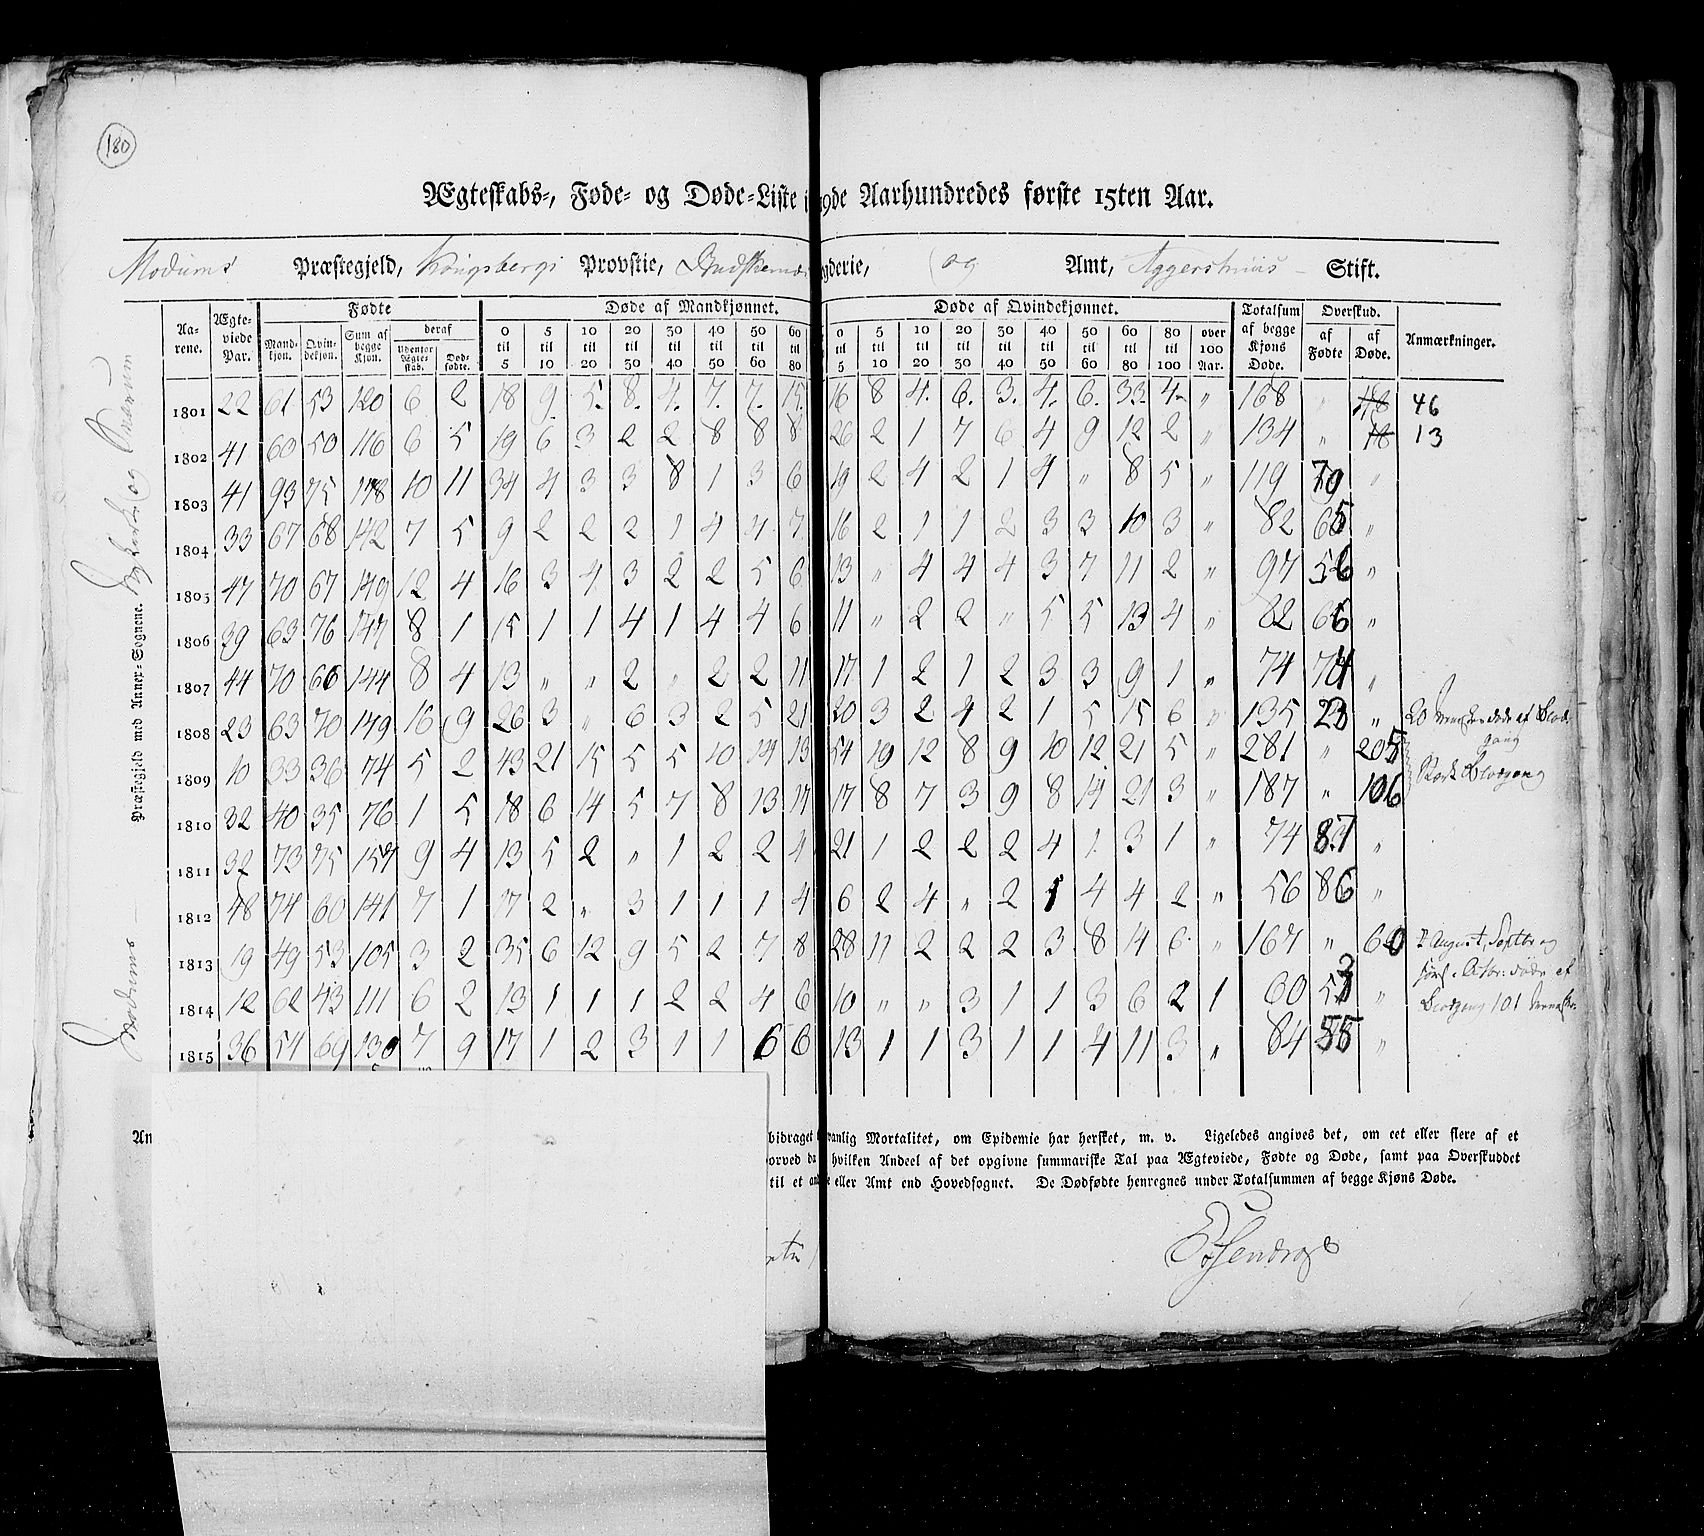 180
Ægteskabs-, Føde- og Døde-Liste i 19de Aarhundredes første 15ten Aar.
Modums Præstegjeld, Kongsbergs Provstie, gderie, og Amt, Aggershuus Stift.
Modums Præstegjeld med Anner-Sognene. og Snarum
Aarene. Ægteviede Par. Fødte Døde af Mandkjønnet. Døde af Qvindekjønnet. Totalsum af begge Kjøns Døde. Overskud. Anmærkninger.
Mandkjøn. Qvindekjøn. Sum af begge Kjøn. deraf Udenfor Ægteskab. Dødfødte. 0 til 5 5 til 10 10 til 20 20 til 30 30 til 40 40 til 50 50 til 60 60 til 80 0 til 5 5 til 10 10 til 20 20 til 30 30 til 40 40 til 50 50 til 60 60 til 80 80 til 100 over 100 Aar. af Fødte af Døde.
1801 22 61 53 120 6 2 18 9. 5. 8. 4. 7. 7. 15. 16 8 4. 6. 3. 4. 6. 33. 4 " 168 " 46
1802 41 60 50 116 6 5 19 6 3 2 2 8 8 8 26 2 1 7 6 4 9 12 2 " 134 " 18 13
1803 41 93 75 178 10 11 34 4 3 3 8 1 3 6 19 2 4 2 1 4 " 8 5 " 119 "
1804 33 67 68 142 7 5 9 2 2 2 1 4 4 7 16 2 1 1 2 3 3 10 3 " 82 65 "
1805 47 70 67 149 12 4 16 3 4 3 2 2 5 6 13 " 4 4 4 3 7 11 2 " 97 56 "
1806 39 63 76 147 8 1 15 1 1 4 1 4 4 6 11 " 2 2 " 5 5 13 4 " 82 66 "
1807 44 70 66 144 8 4 13 " " 2 " 2 2 11 17 1 2 1 2 3 3 9 1 " 74 74 "
1808 23 63 70 149 16 9 26 3 " 6 3 2 5 21 20 3 2 4 2 1 5 15 6 " 135 23 " 20 Mennesker døde af Blodgang
1809 10 33 36 74 5 2 43 21 15 5 5 10 14 13 54 19 12 8 9 10 12 21 5 " 281 " 205 Stærk Blodgang
1810 32 40 35 76 1 5 18 6 14 5 7 8 13 14 17 8 7 3 9 8 14 21 3 " 187 " 106
1811 32 73 75 157 9 4 13 5 2 " 1 2 2 4 21 1 2 2 2 4 1 3 1 " 74 87 "
1812 48 74 60 141 7 1 17 2 " 3 1 1 1 4 6 2 4 " 2 5 4 4 2 " 56 86 "
1813 19 49 53 105 3 2 35 6 12 9 5 2 7 8 28 11 2 2 2 3 8 14 6 " 167 " 60 I August, Septbr og
1814 12 62 43 111 6 2 13 1 1 1 2 2 4 6 10 " " 3 1 1 3 6 2 1 60 53 " Octbr: døde af
Blodgang 101 Mennesker.
1815 36 54 69 130 7 9 17 1 2 3 1 1 6 6 13 1 1 3 1 1 4 11 3 " 84 55 "
An
bidraget vanlig Mortalitet, om Epidemie har hersket, m. v. Ligeledes angives det, om eet eller flere af et
hvilken Andeel af det opgivne summariske Tal paa Ægteviede, Fødte og Døde, samt paa Overskuddet
til et eller Amt end Hovedsognet. De Dødfødte henregnes under Totalsummen af begge Kjøns Døde.